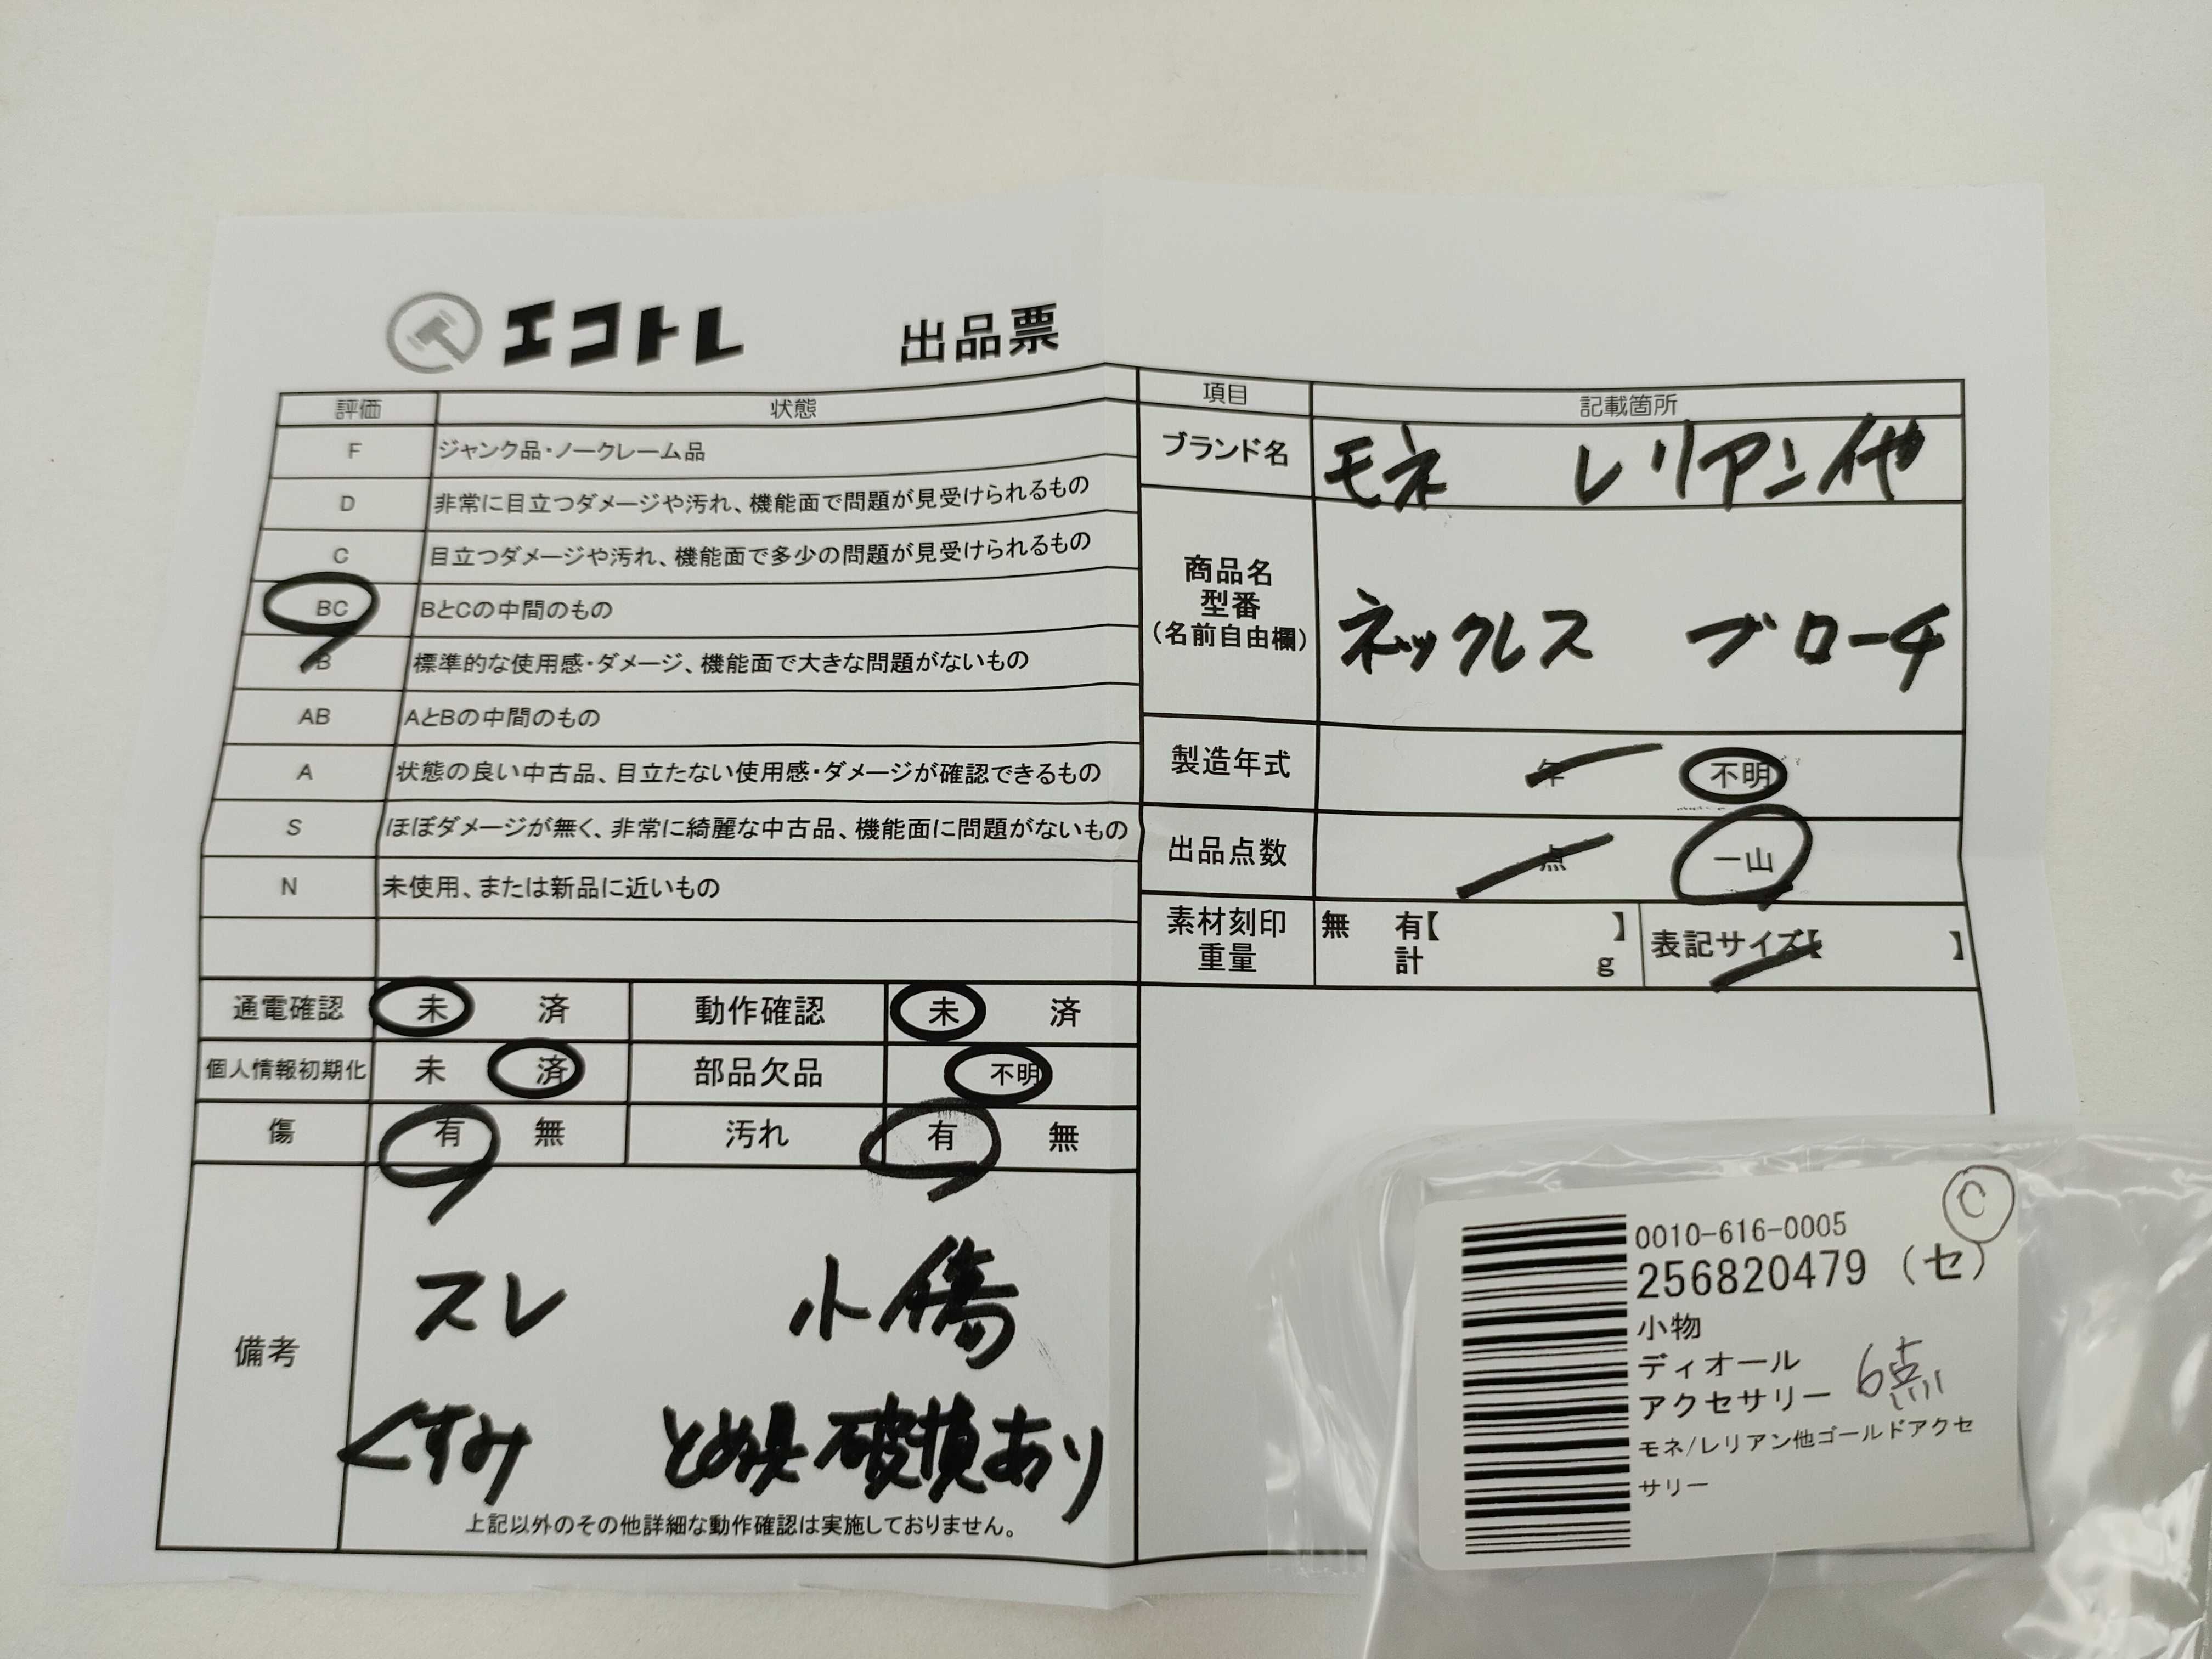 エコトレ 出品票
評価 状態
F ジャンク品・ノークレーム品
D 非常に目立つダメージや汚れ、機能面で問題が見受けられるもの
C 目立つダメージや汚れ、機能面で多少の問題が見受けられるもの
BC BとCの中間のもの
B 標準的な使用感・ダメージ、機能面で大きな問題がないもの
AB AとBの中間のもの
A 状態の良い中古品、目立たない使用感・ダメージが確認できるもの
S ほぼダメージが無く、非常に綺麗な中古品、機能面に問題がないもの
N 未使用、または新品に近いもの
通電確認 未 済 動作確認 未 済
個人情報初期化 未 済 部品欠品 不明
傷 有 無 汚れ 有 無
備考
スレ 小傷
くすみ とめ具破損あり
上記以外のその他詳細な動作確認は実施しておりません。
項目 記載箇所
ブランド名 モネ レリアン他
商品名
型番
(名前自由欄)
ネックレス ブローチ
製造年式 年 不明
出品点数 点 一山
素材刻印 無 有【 】 表記サイズ【 】
重量 計 g
C
0010-616-0005
256820479 (セ)
小物
ディオール
アクセサリー 6点
モネ/レリアン他ゴールドアクセ
サリー